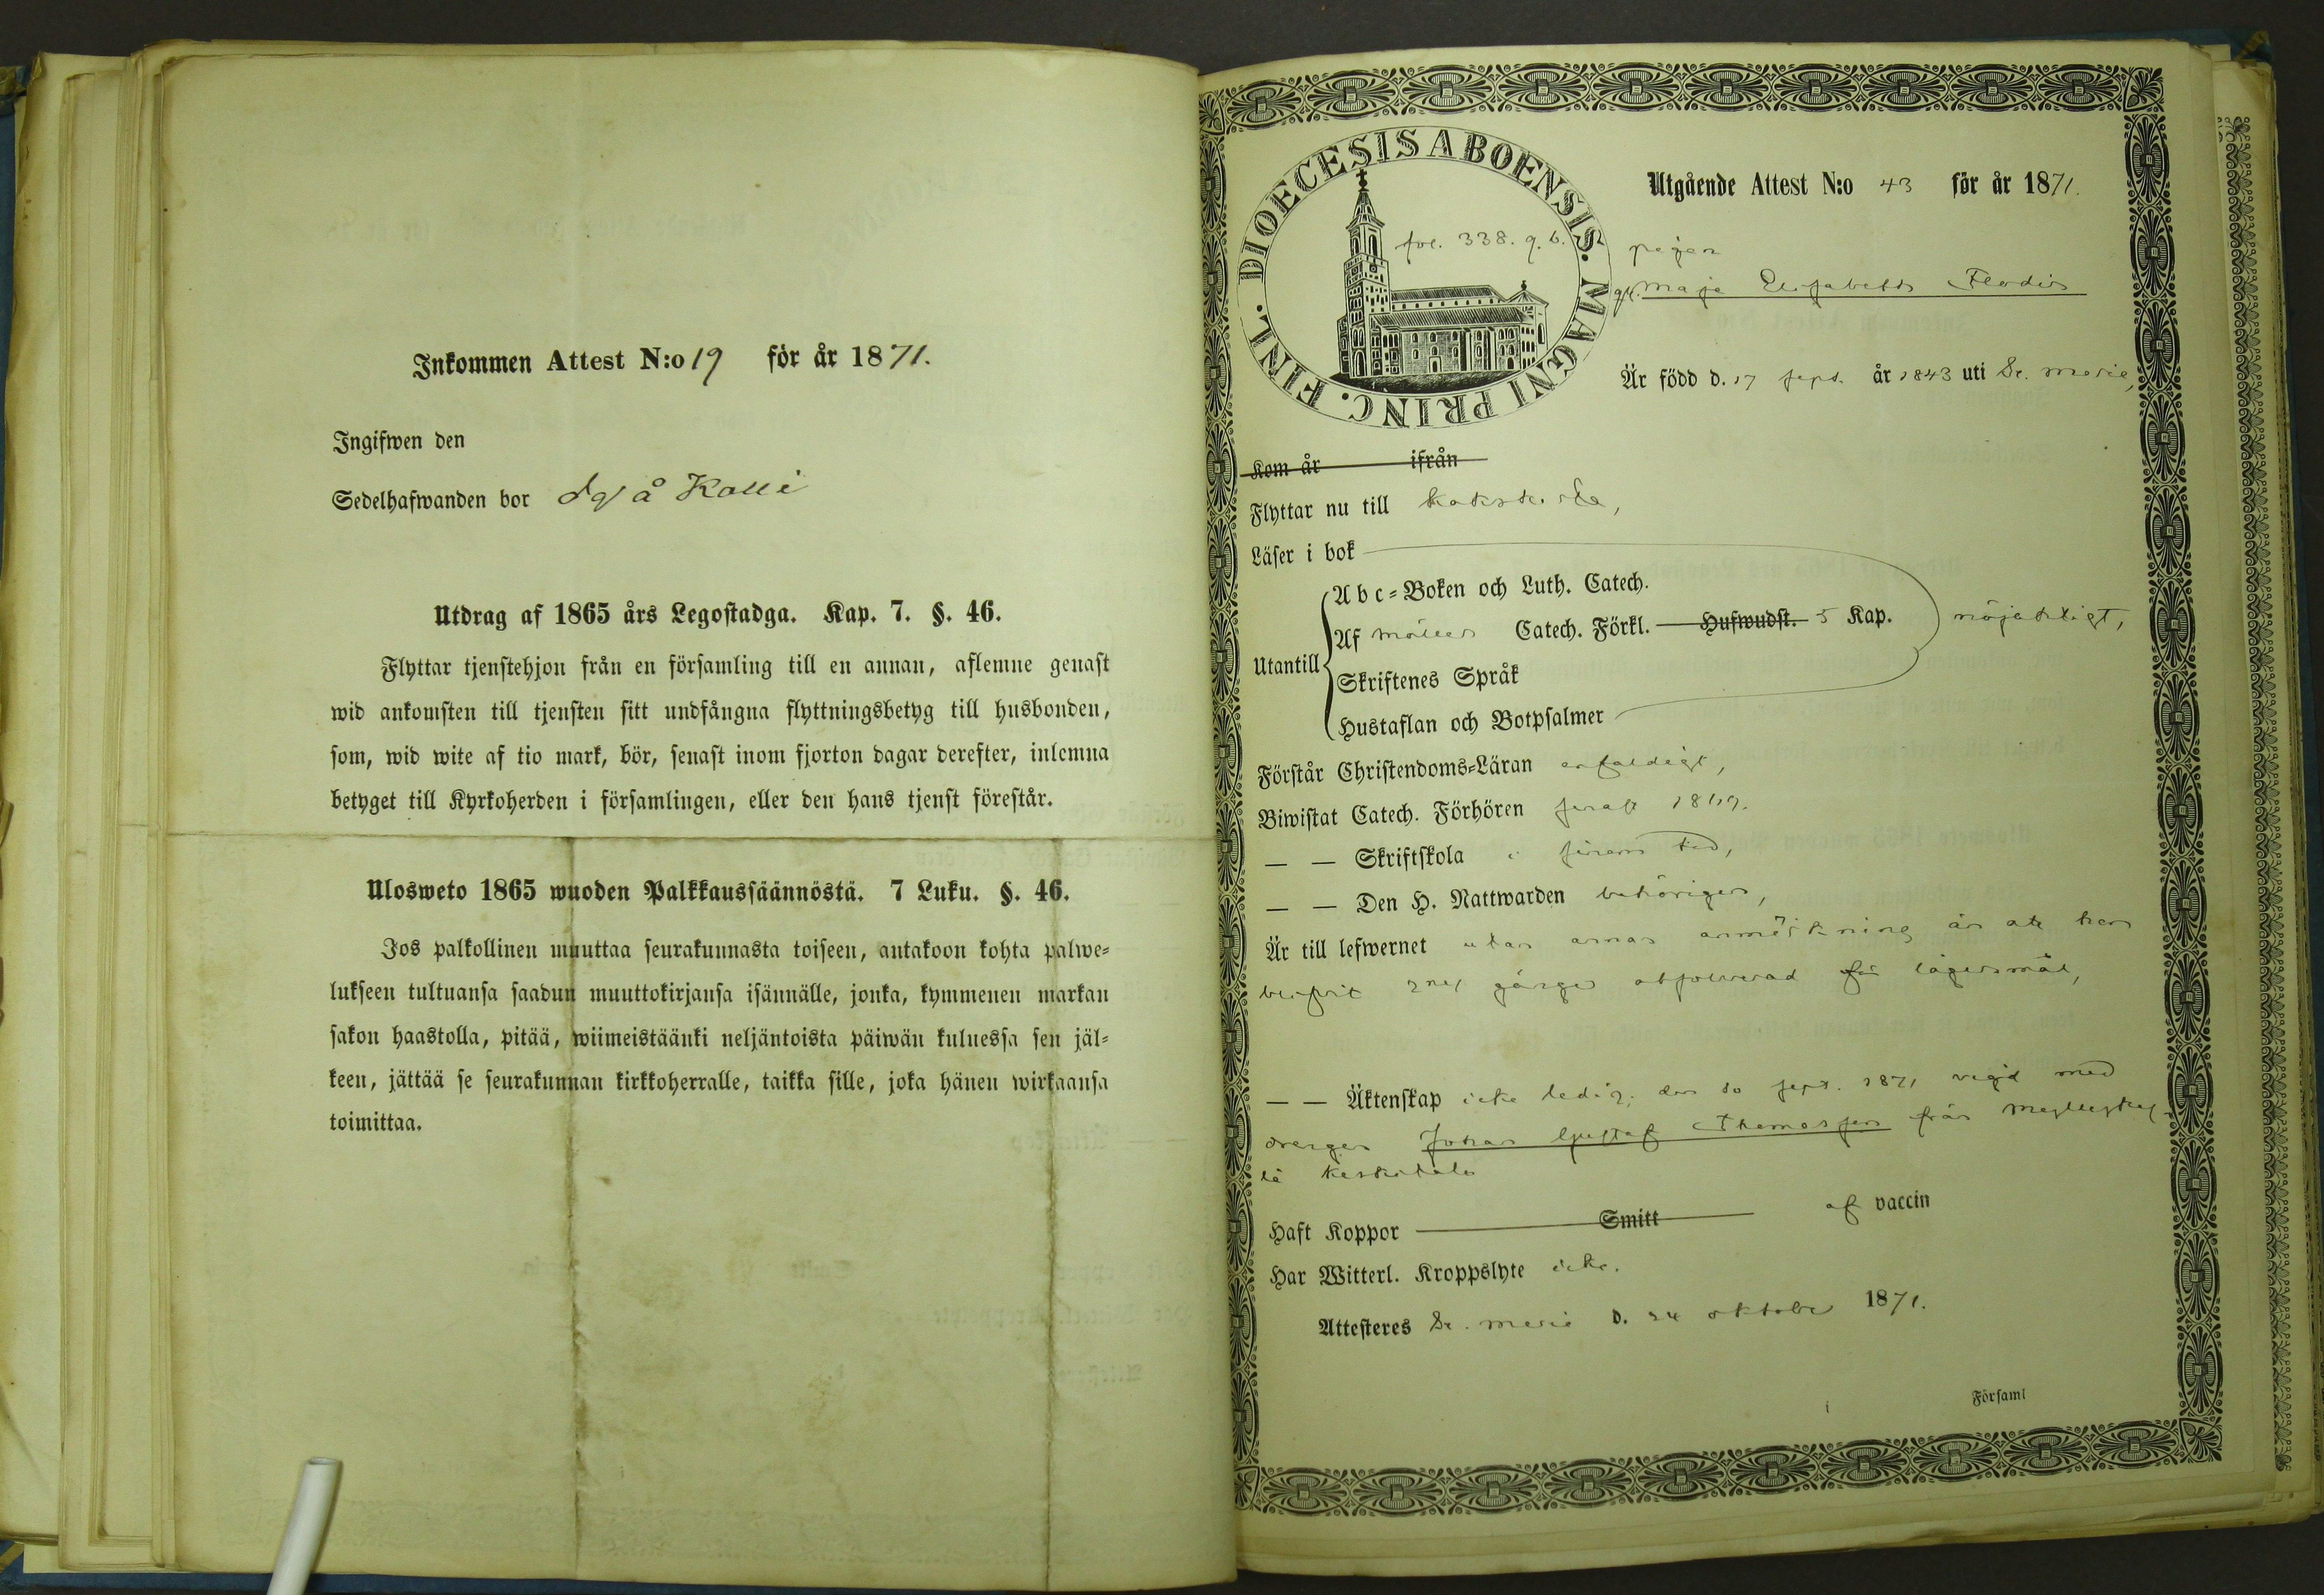 Inkommen Attest N:o 19 för år 1871.
Ingifwen den
Sedelhafwanden bor å
Utdrag af 1865 års Legostadga. Kap. 7. §. 46.
Flyttar tjenstehjon från en församling till en annan, aflemne genast
wid ankomsten till tjensten sitt undfångna flyttningsbetyg till husbonden,
som, wid wite af tio mark, bör, senast inom fjorton dagar derefter, inlemna
betyget till Kyrkoherden i församlingen, eller den hans tjenst förestår.
Ulosweto 1865 wuoden Palkkaussäännöstä. 7 Luku. §. 46.
Jos palkollinen muuttaa seurakunnasta toiseen, antakoon kohta palwe=
lukseen tultuansa saadun muuttokirjansa isännälle, jonka, kymmenen markan
sakon haastolla, pitää, wiimeistäänki neljäntoista päiwän kuluessa sen jäl=
keen, jättää se seurakunnan kirkkoherralle, taikka sille, joka hänen wirkaansa
toimittaa.
DIOECESIS ABOENSIS. MAGNI PRINC. FINL.
fol. 338. q. b.
Utgående Attest N:o 43 för år 1871.
pigan
Maja Elisabeth Flodin
Är född d. 17 sept. år 1843 uti St. Marie,
Kom år ifrån
Flyttar nu till
Läser i bok
Utantill
Abc=Boken och Luth. Catech.
Af Möllers Catech. Förkl. Hufwudst. 5 Kap.
Skriftenes Språk
Hustaflan och Botpsalmer
nöjaktigt,
Förstår Christendoms=Läran enfaldigt,
Biwistat Catech. Förhören senast 1869.
— — Skriftskola i sinom tid,
— — Den H. Nattwarden behörigen,
Är till lefwernet utan annan anmärkning än att hon
blifvit gånger absolverad för lägersmål,
— — Äktenskap icke ledig; den 10 sept. 1871 vigd med
drengen Johan Gustaf Thomasson från
Haft Koppor Smitt af vaccin
Har Witterl. Kroppslyte icke.
Attesteres St. Marie d. 24 oktober 1871.
i Församl